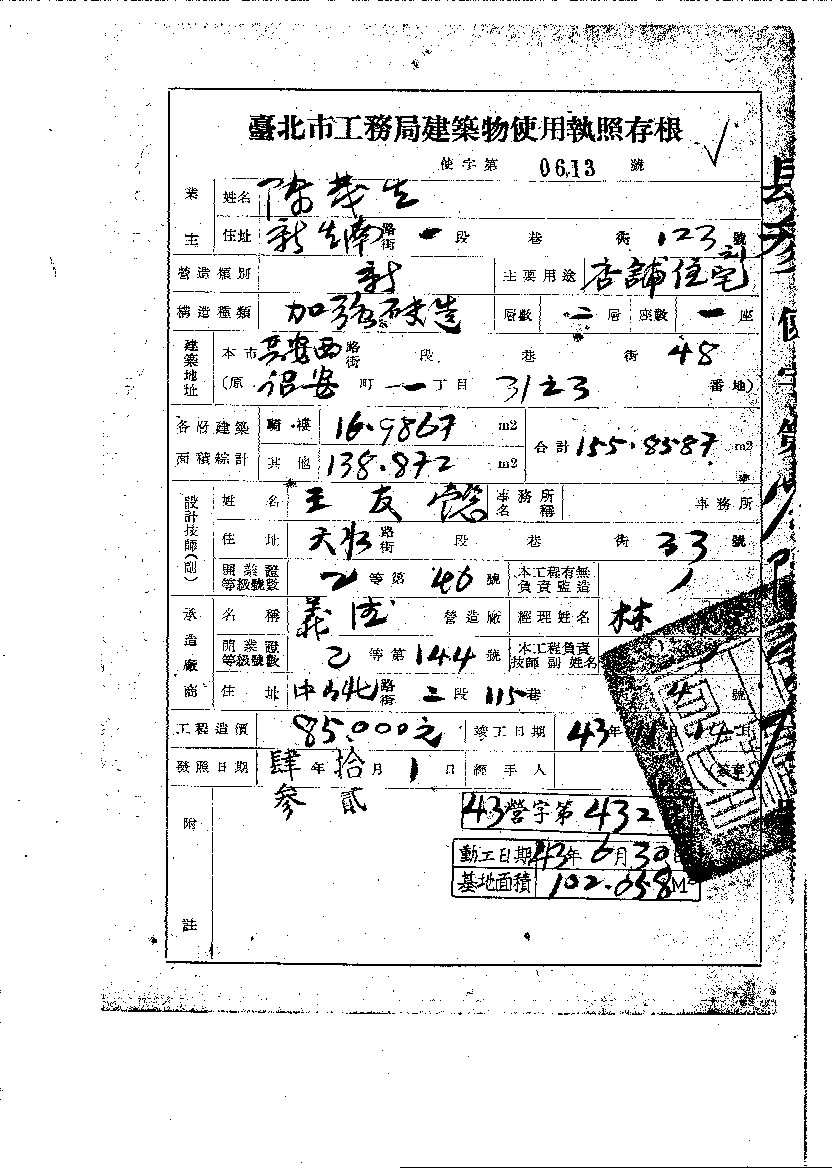 臺北市工務局建築物使用執照存根
使字第 0613 號
業主 姓名 陳茂生
住址 新生南路街 一段 巷 街 123 號
營造類別 新 主要用途 店舖住宅
構造種類 加強磚造 層數 二層 座數 一座
建築地址 本市 長安西路街 段 巷 街 48
(原 保安町 一丁目 3123 番地)
各層建築面積綜計 騎樓 16.9867 m2 合計 155.8587 m2
其他 138.872 m2
設計技師(副) 姓名 王友 事務所名稱 事務所
住址 天水路街 段 巷 街 33 號
開業證等級號數 乙等第 46 號 本工程有無負責監造
承造廠商 名稱 義 營造廠 經理姓名 林
開業證等級號數 乙等第 144 號 本工程負責技師副姓名
住址 中山北路街 二段 115巷 4 號
工程造價 85.000元 竣工日期 43年11月
發照日期 肆參年拾貳月1日 經手人
43營字第432
動工日期 43年6月30日
基地面積 102.058M2
附註